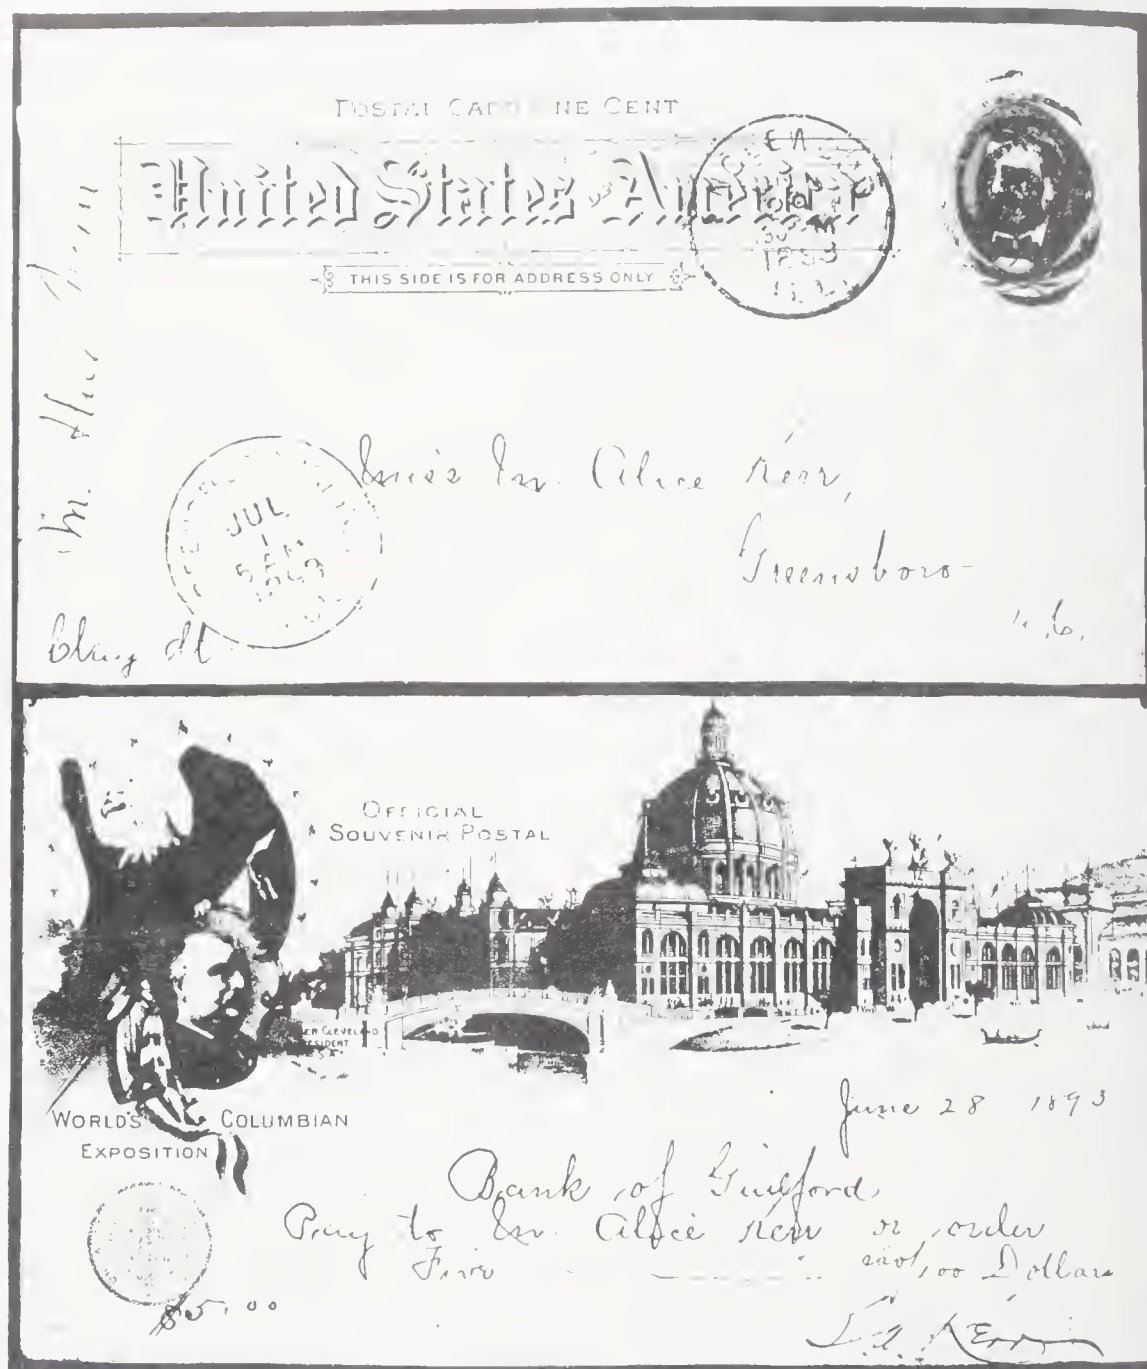 POSTAL CARD ONE CENT
United States of America
THIS SIDE IS FOR ADDRESS ONLY
1893
JUL
1
1893
Miss M. Alice Kerr,
Greensboro
N.C.
M. Alice Kerr
OFFICIAL
SOUVENIR POSTAL
CLEVELAND
PRESIDENT
WORLD'S COLUMBIAN
EXPOSITION
June 28 1893
Bank of Guilford
Pay to M. Alice Kerr or order
Five no/100 Dollars
$5.00
Kerr